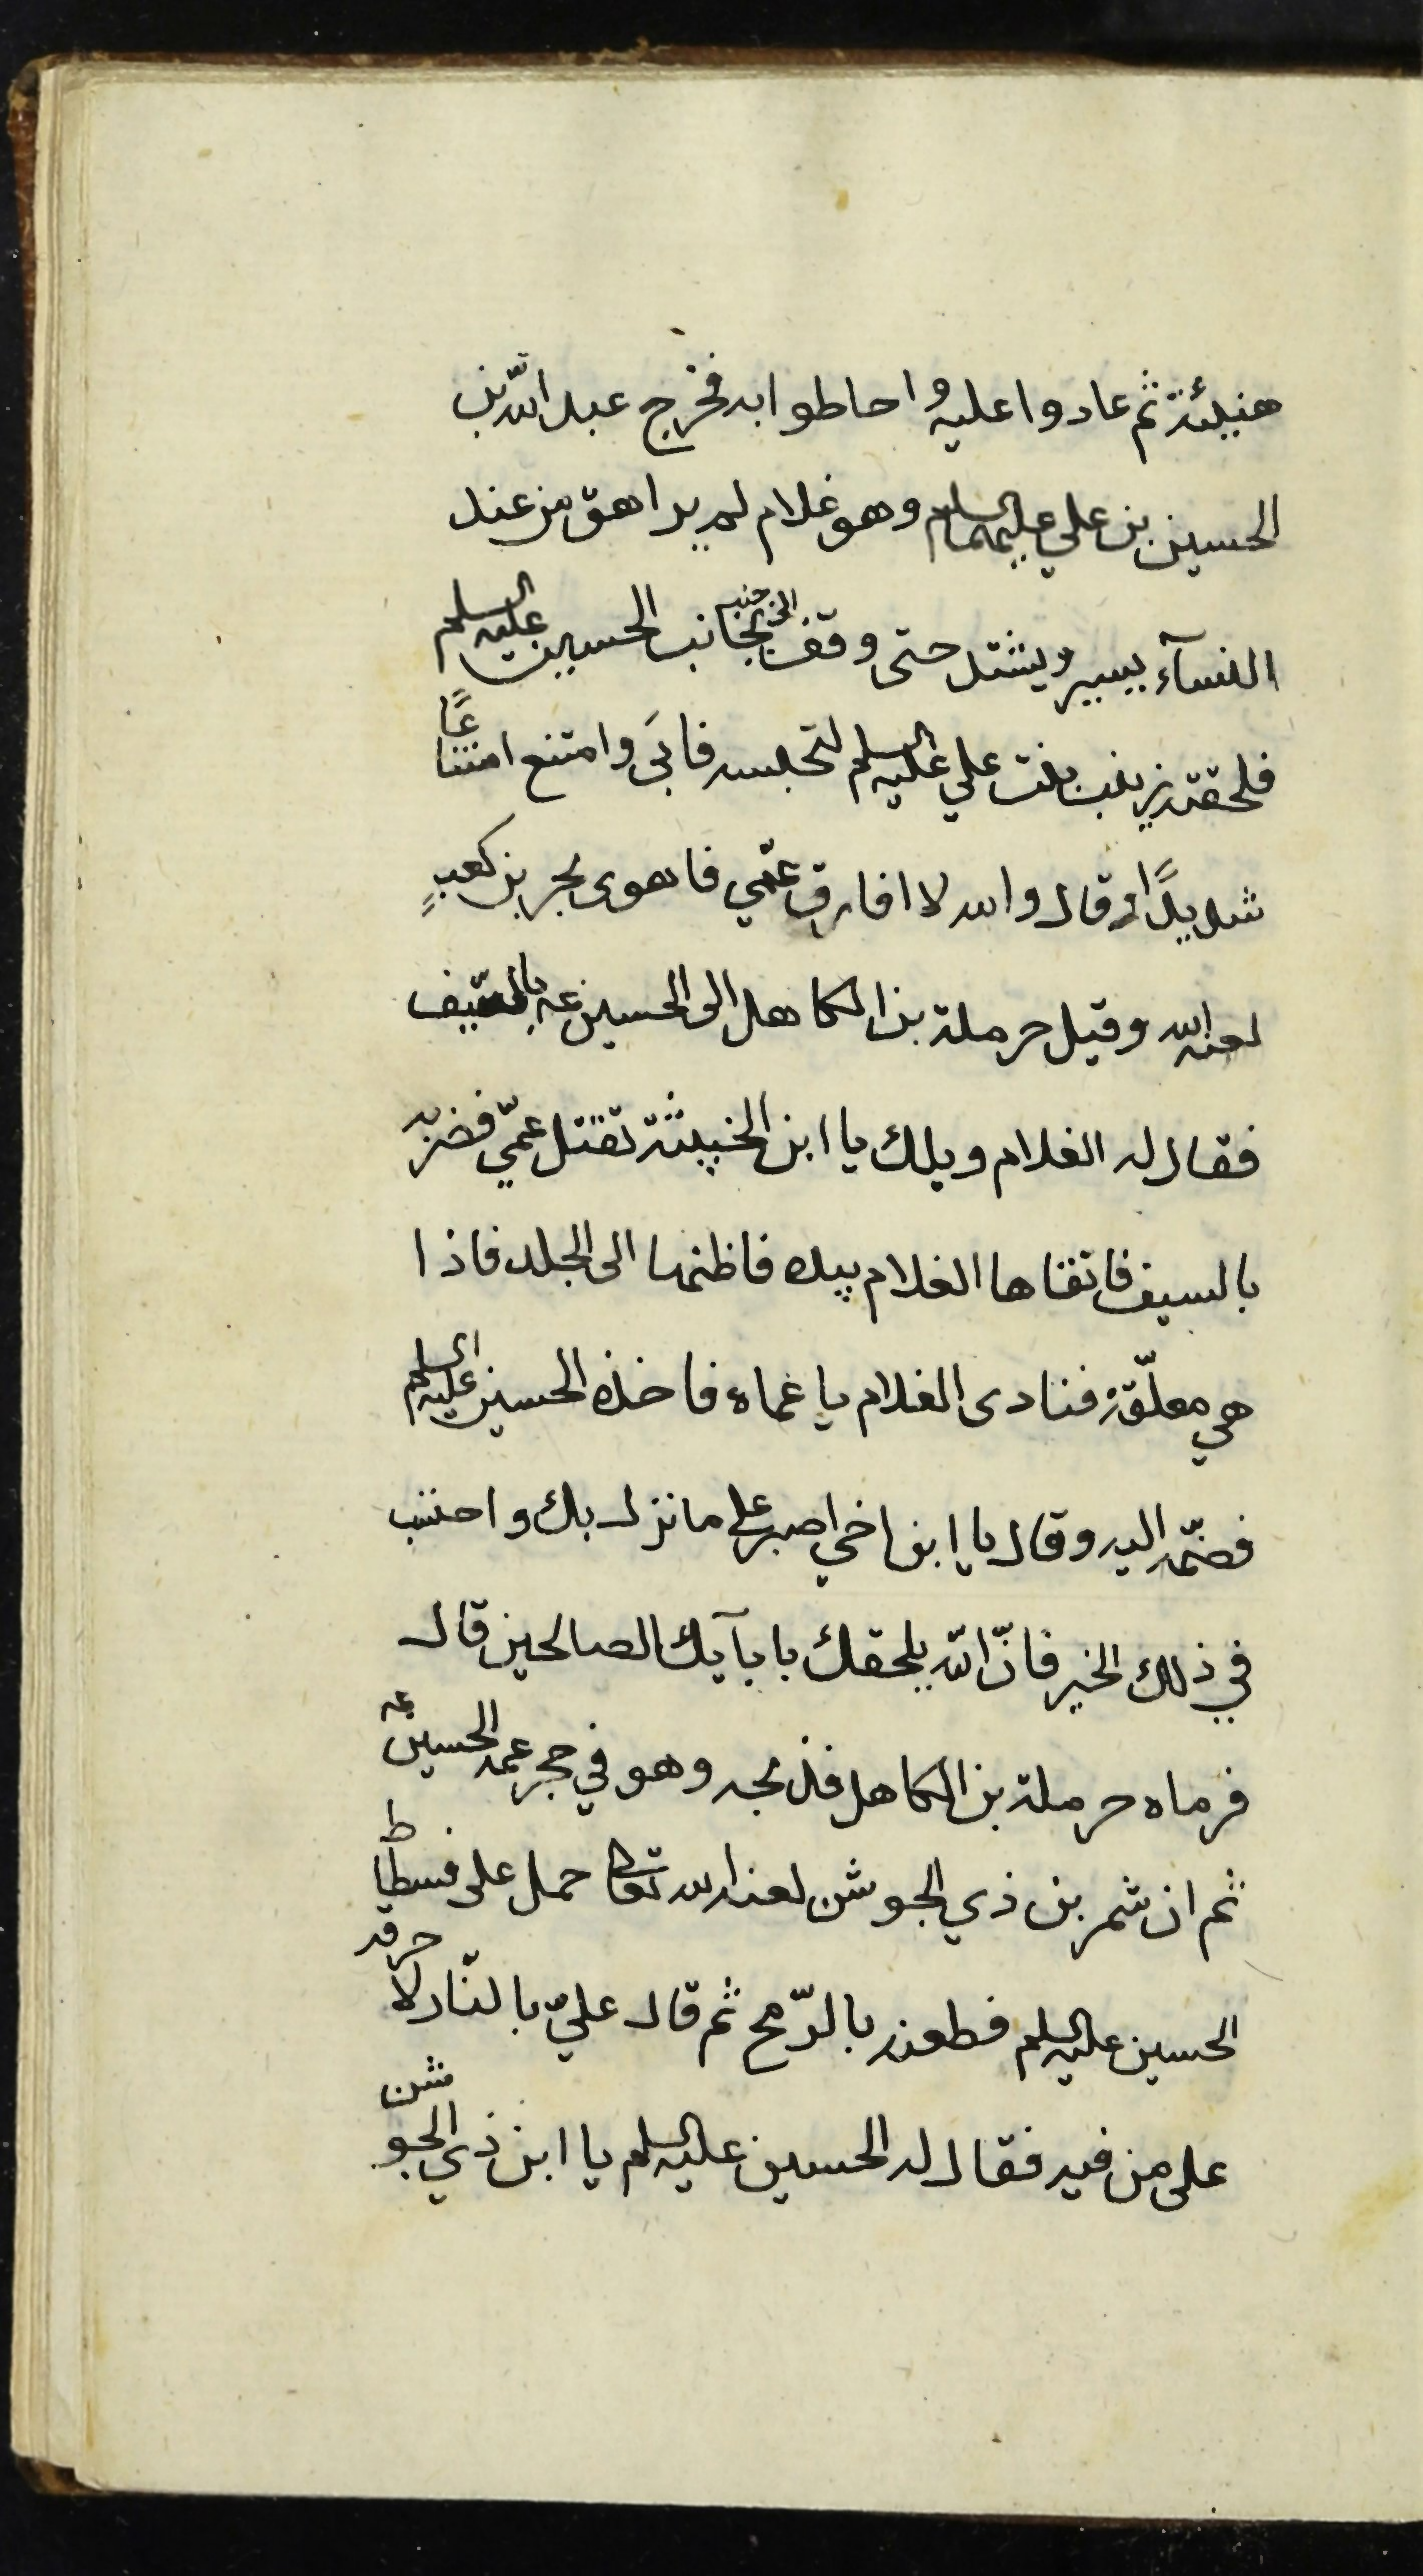 هنيئة ثم عادوا عليه واحاطوا به فخرج عبد اللّه بن
الحسين بن علي عليهما السلام وهو غلام لم يراهق من عند
النسآء يسير ويشتد حتى وقف الى جنبه بجانب الحسين عليه السلم
فلحقته زينب بنت علي عليه السلم لتحبسه فابَى وامتنع امتناعًا
شديدًا وقال والله لا افارق عمّي فاهوى بحر بن كعبٍ
لعنه الله وقيل حرملة بن الكاهل الى الحسين عہ بالسّيف
فقال له الغلام ويلك يا ابن الخبيثة تقتل عمّي فضربه
بالسيف فاتقاها الغلام بيده فاطنها الى الجلد فاذا
هي معلّقة فنادى الغلام يا عماه فاخذه الحسين عليه السلم
فضمّه اليه وقال يا ابن اخي اصبر على ما نزل بك واحتسب
في ذلك الخير فانّ اللّه يلحقك بابآيك الصالحين قال
فرماه حرملة بن الكاهل فذبحه وهو في حجر عمه الحسين عہ
ثم ان شمر بن ذي الجوشن لعنه الله تعالى حمل على فسطاط
الحسين عليه السلم فطعنه بالرّمح ثم قال عليّ بالنّار لاحرقه
على من فيه فقال له الحسين عليه السلم يا ابن ذي الجوشن